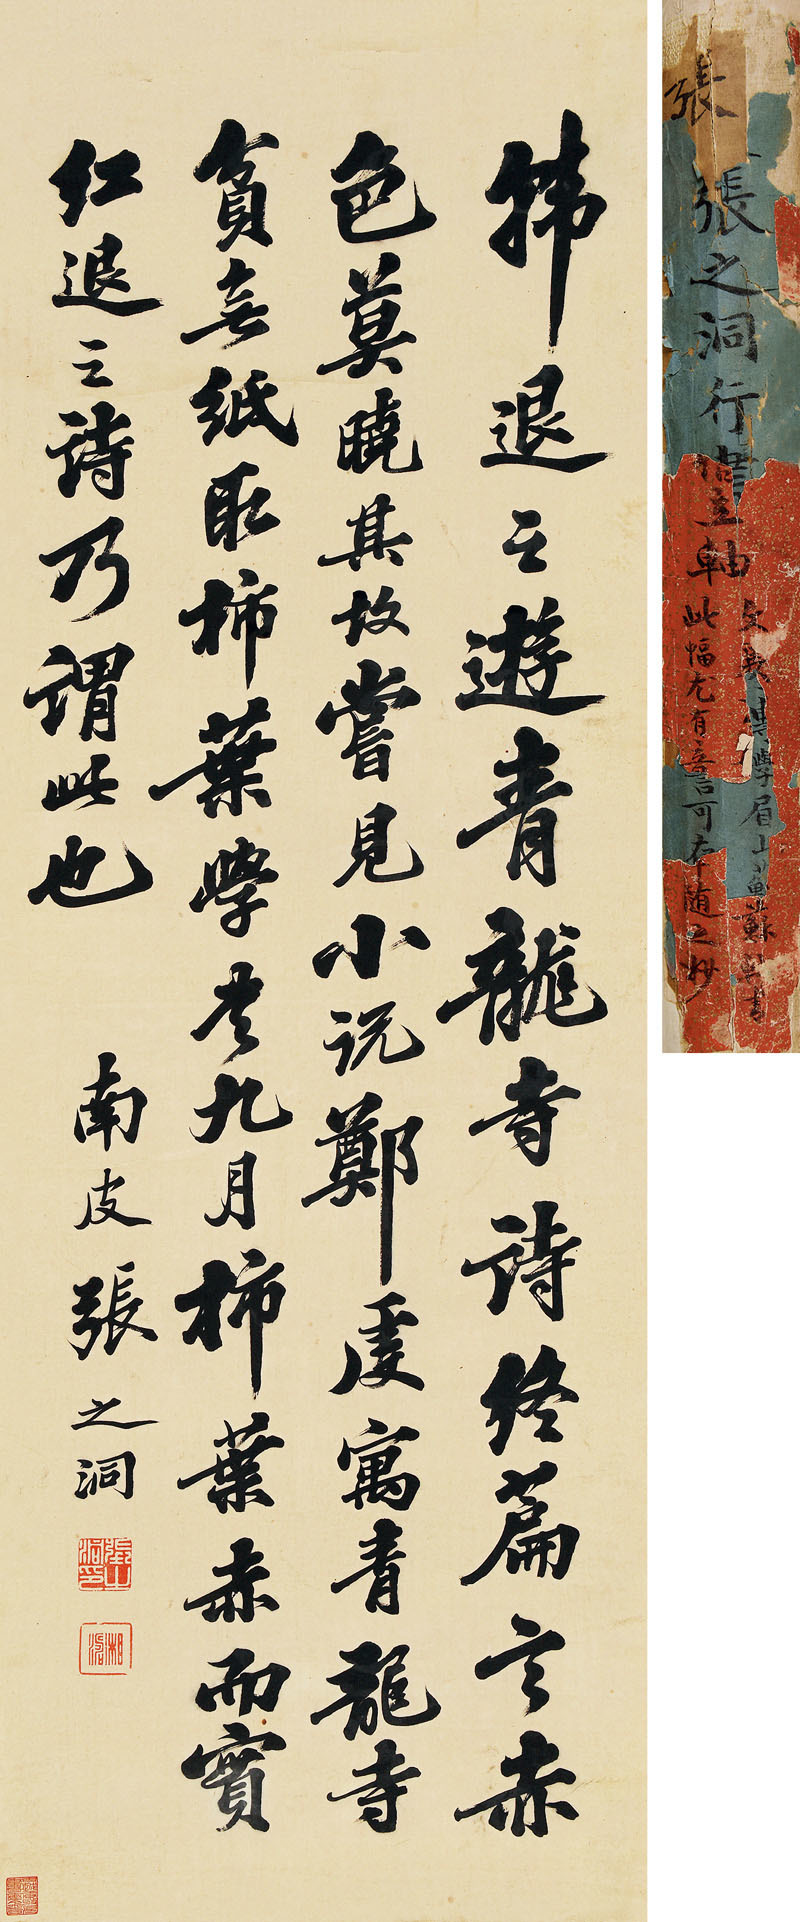 韓退之遊青龍寺詩終篇言赤
色莫曉其故嘗見小说鄭虔寓青龍寺
貧無紙取柿葉學書九月柿葉赤而實
红退之詩乃謂此也
南皮張之洞
張之洞印
湘濤
張
張之洞行書立軸
文襄 學眉山 蘇
此幅尤有 可 随之妙